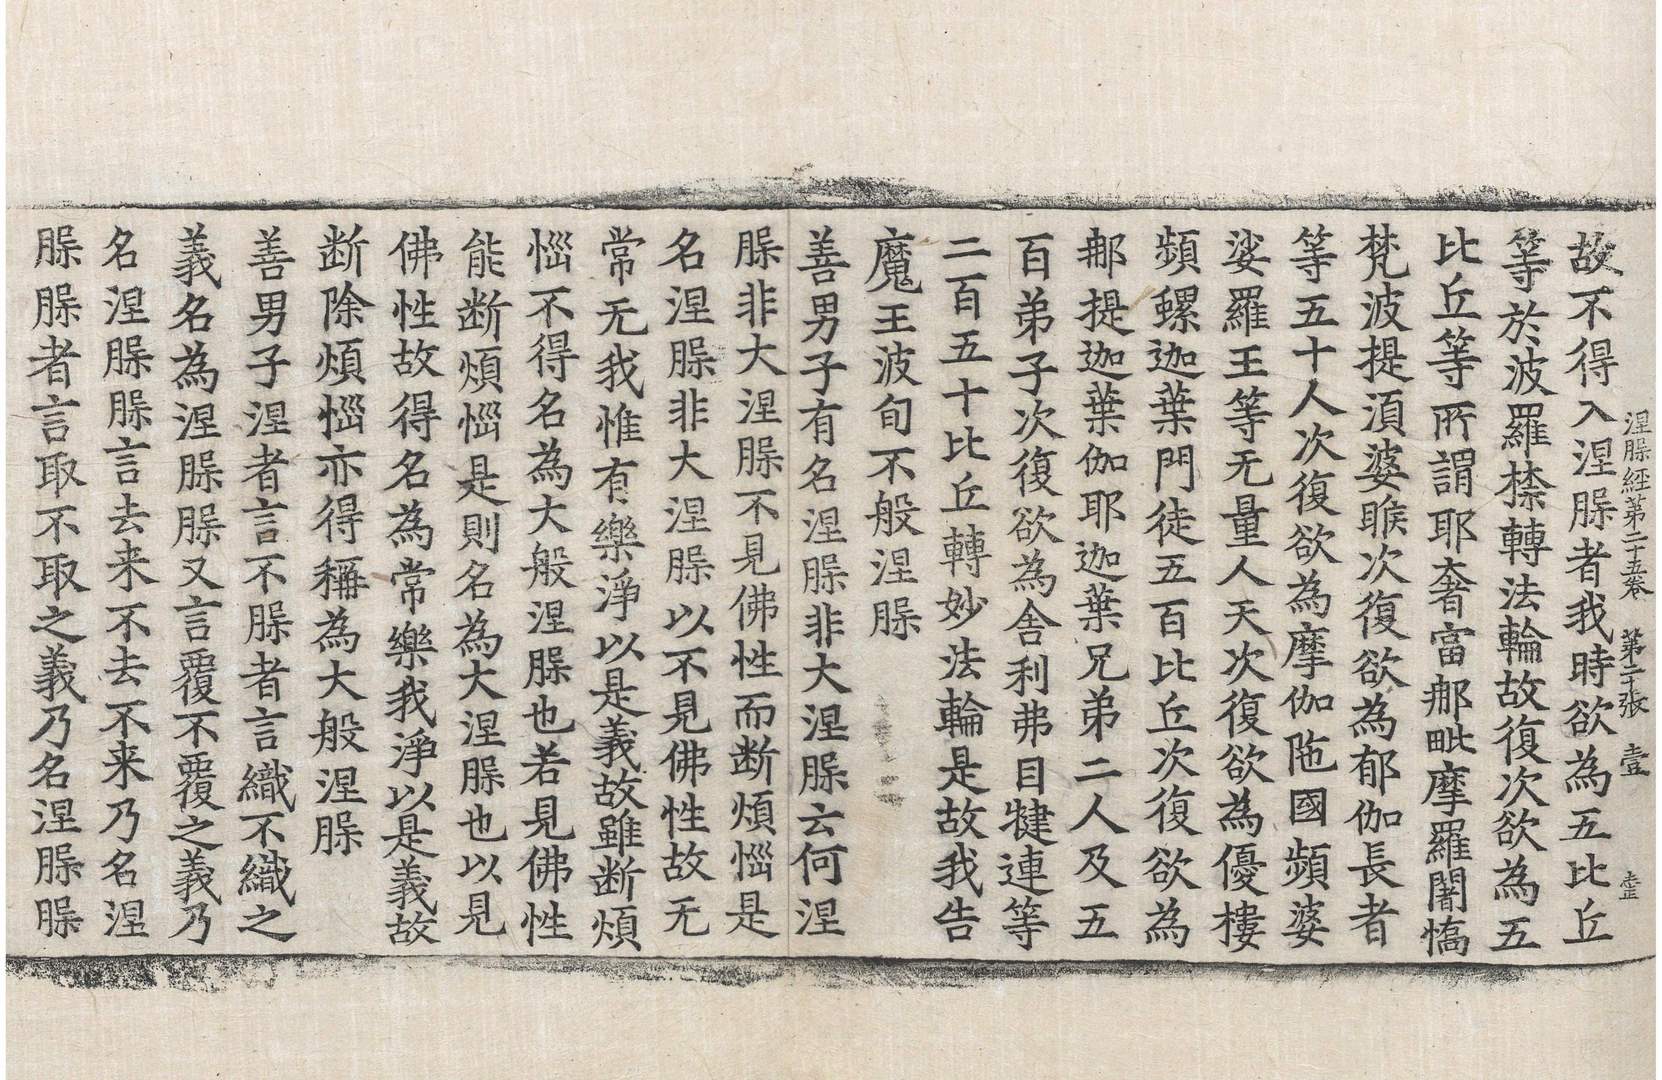 涅槃經第二十五卷　第二十張　壹　壹
故不得入涅槃者我時欲為五比丘
等於波羅㮈轉法輪故復次欲為五
比丘等所謂耶奢富那毗摩羅闍憍
梵波提湏婆睺次復欲為郁伽長者
等五十人次復欲為摩伽陁國頻婆
娑羅王等无量人天次復欲為優樓
頻螺迦葉門徒五百比丘次復欲為
那提迦葉伽耶迦葉兄弟二人及五
百弟子次復欲為舍利弗目犍連等
二百五十比丘轉妙法輪是故我告
魔王波旬不般涅槃
善男子有名涅槃非大涅槃云何涅
槃非大涅槃不見佛性而断煩惱是
名涅槃非大涅槃以不見佛性故无
常无我惟有樂淨以是義故雖断煩
惱不得名為大般涅槃也若見佛性
能断煩惱是則名為大涅槃也以見
佛性故得名為常樂我淨以是義故
断除煩惱亦得稱為大般涅槃
善男子涅者言不槃者言織不織之
義名為涅槃槃又言覆不覆之義乃
名涅槃槃言去来不去不来乃名涅
槃槃者言取不取之義乃名涅槃槃